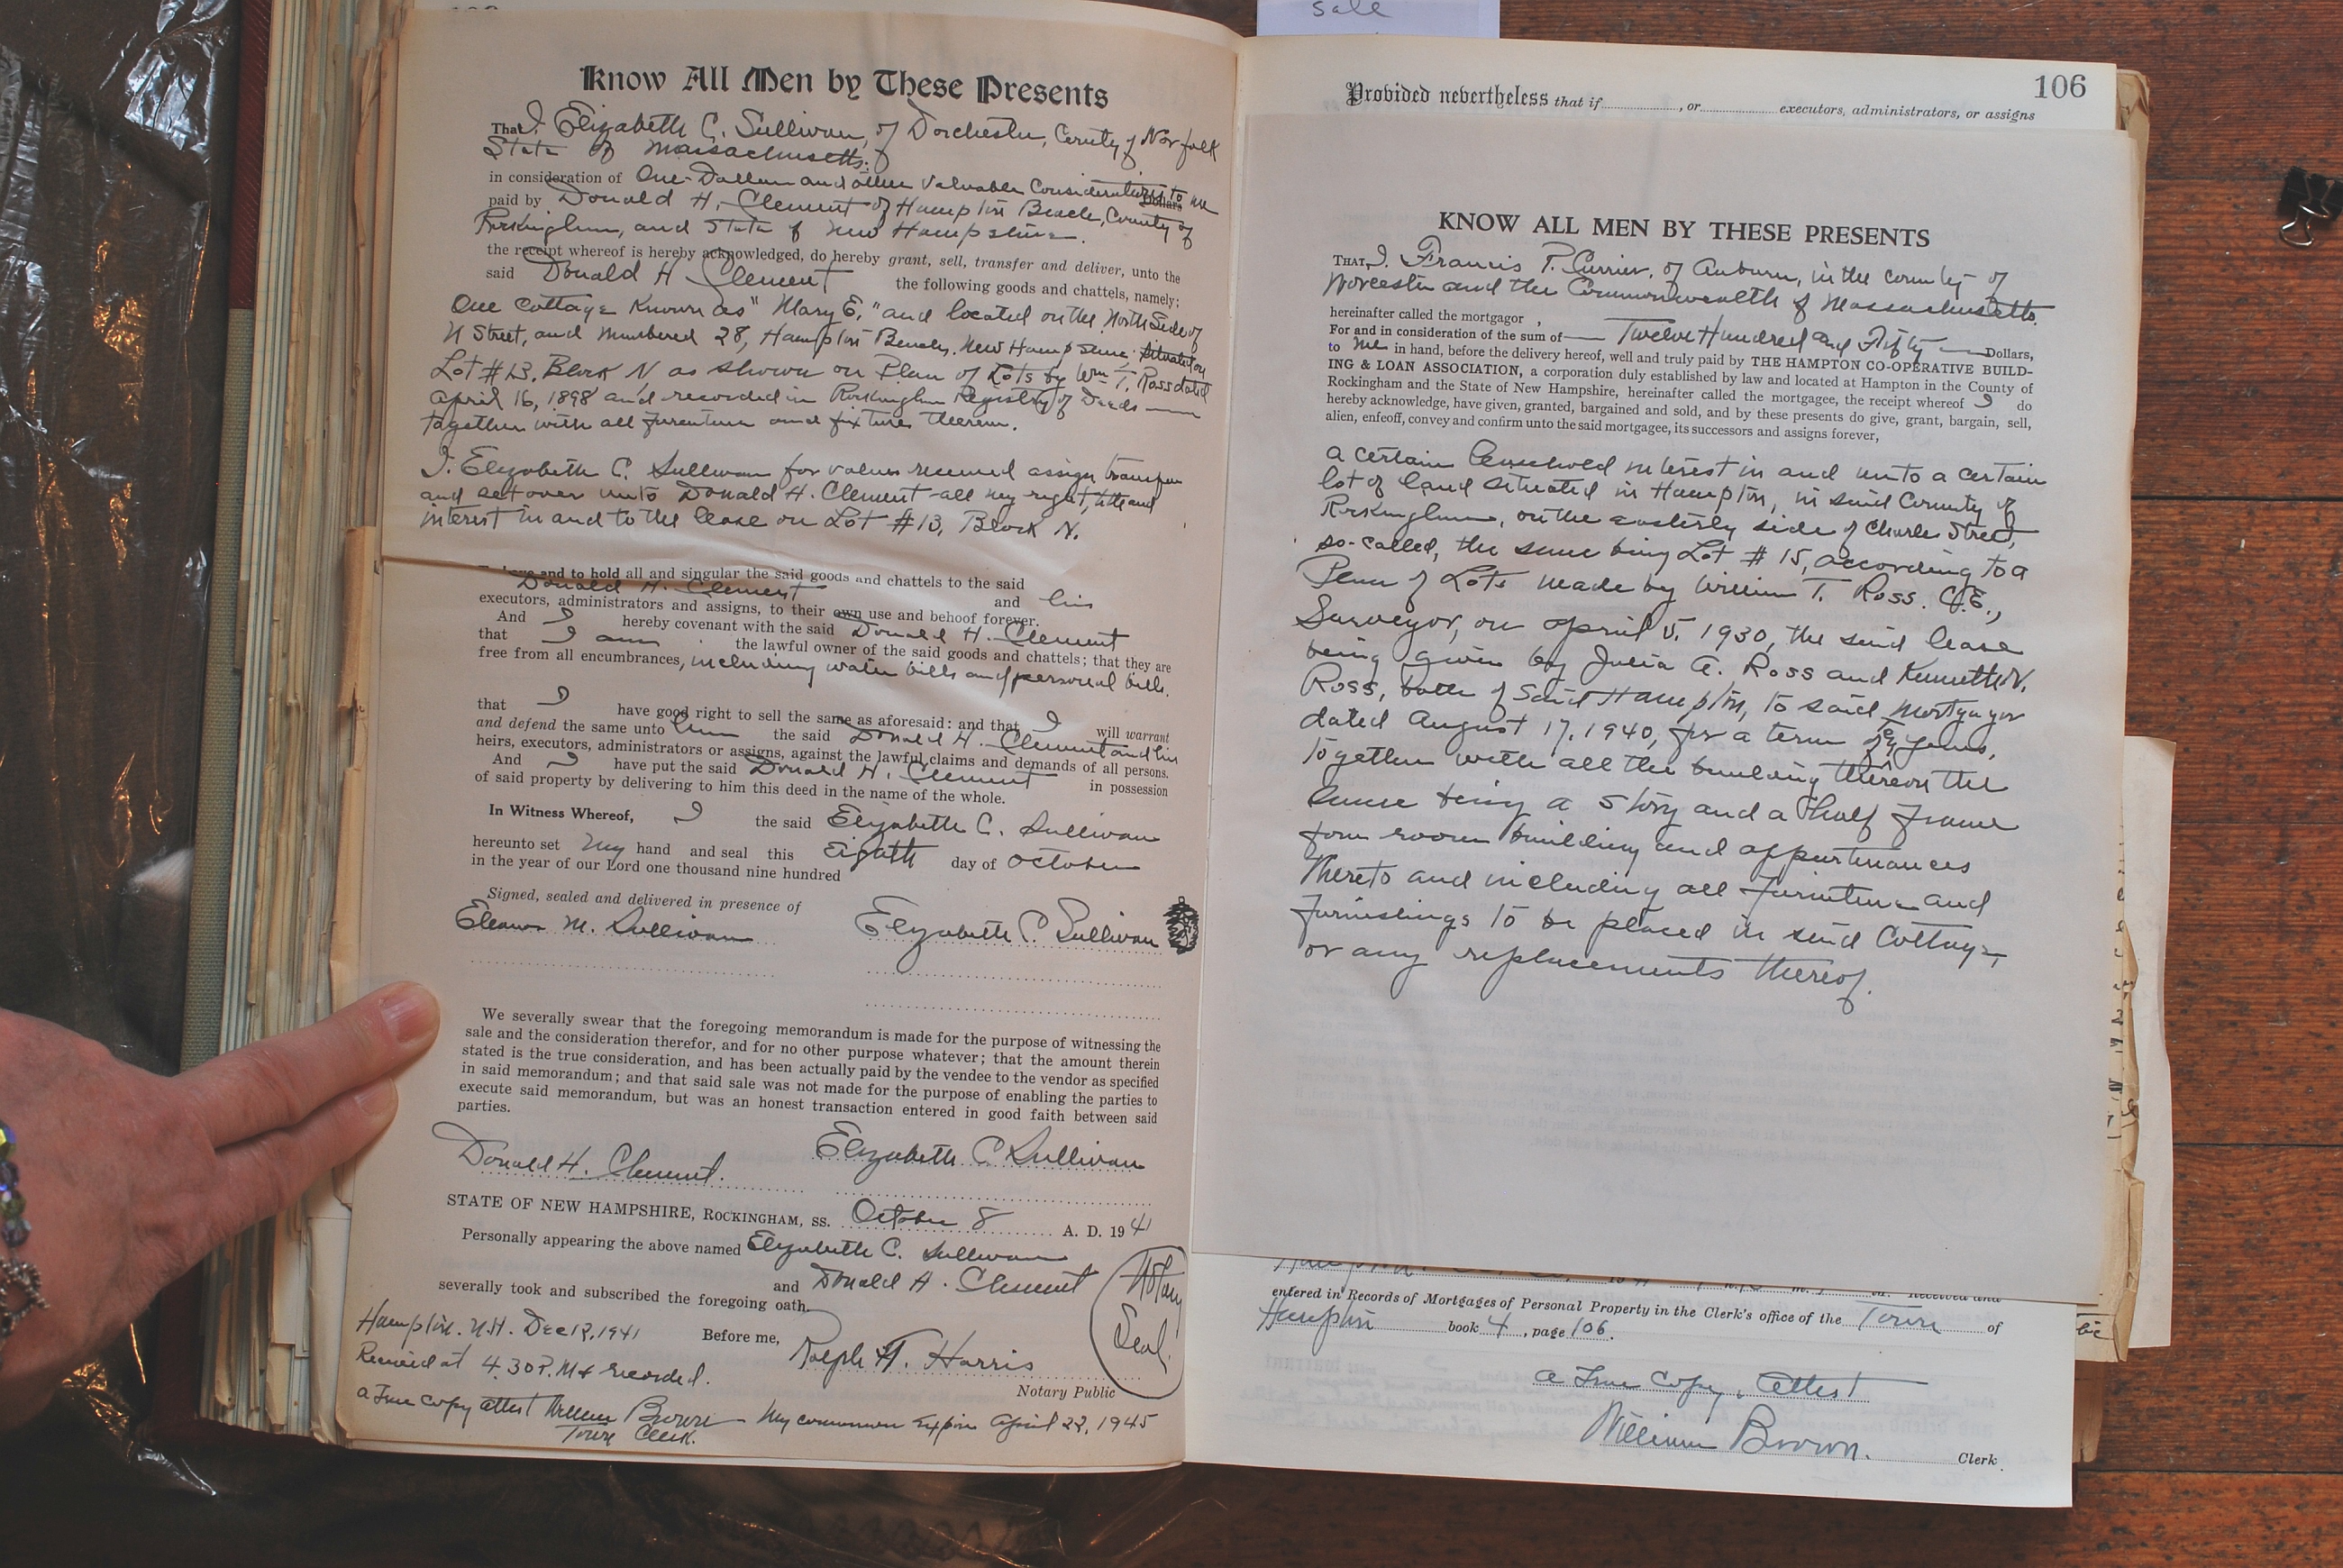 sale
Know All Men by These Presents
That I. Elizabeth C. Sullivan, of Dorchester, County of Norfolk
State of Massachusetts.
in consideration of One Dollar and other valuable considerations to me Dollars
paid by Donald H. Clement of Hampton Beach, County of
Rockingham, and State of New Hampshire.
the receipt whereof is hereby acknowledged, do hereby grant, sell, transfer and deliver, unto the
said Donald H Clement the following goods and chattels, namely;
One cottage known as "Mary E." and located on the North Side of
N Street, and numbered 28, Hampton Beach, New Hampshire, situated on
Lot #13, Block N as shown on Plan of Lots by Wm T. Ross dated
April 16, 1898 and recorded in Rockingham Registry of Deeds
together with all furniture and fixtures therein.
I. Elizabeth C. Sullivan for values received assign transfer
and set over unto Donald H. Clement all my right, title and
interest in and to the lease on Lot #13, Block N.
and to hold all and singular the said goods and chattels to the said
Donald H. Clement and his
executors, administrators and assigns, to their own use and behoof forever.
And I hereby covenant with the said Donald H. Clement
that I am the lawful owner of the said goods and chattels; that they are
free from all encumbrances, including water bills and personal bills.
that I have good right to sell the same as aforesaid: and that I will warrant
and defend the same unto him the said Donald H. Clement and his
heirs, executors, administrators or assigns, against the lawful claims and demands of all persons.
And I have put the said Donald H. Clement in possession
of said property by delivering to him this deed in the name of the whole.
In Witness Whereof, I the said Elizabeth C. Sullivan
hereunto set my hand and seal this Eighth day of October
in the year of our Lord one thousand nine hundred
Signed, sealed and delivered in presence of
Eleanor M. Sullivan Elizabeth C. Sullivan
We severally swear that the foregoing memorandum is made for the purpose of witnessing the
sale and the consideration therefor, and for no other purpose whatever; that the amount therein
stated is the true consideration, and has been actually paid by the vendee to the vendor as specified
in said memorandum; and that said sale was not made for the purpose of enabling the parties to
execute said memorandum, but was an honest transaction entered in good faith between said
parties.
Donald H. Clement. Elizabeth C Sullivan
STATE OF NEW HAMPSHIRE, ROCKINGHAM, SS. October 8 A. D. 1941
Personally appearing the above named Elizabeth C. Sullivan
and Donald H. Clement
severally took and subscribed the foregoing oath.
Notary Seal.
Hampton. N.H. Dec 12, 1941 Before me, Ralph T. Harris
Received at 4.30 P.M & recorded. Notary Public
a True copy attest William Brown My commission expires April 22, 1945
Town Clerk.
106
Provided nevertheless that if , or executors, administrators, or assigns
KNOW ALL MEN BY THESE PRESENTS
THAT, I. Francis P. Currier, of Auburn, in the county of
Worcester and the Commonwealth of Massachusetts.
hereinafter called the mortgagor ,
For and in consideration of the sum of Twelve Hundred and Fifty Dollars,
to me in hand, before the delivery hereof, well and truly paid by THE HAMPTON CO-OPERATIVE BUILD-
ING & LOAN ASSOCIATION, a corporation duly established by law and located at Hampton in the County of
Rockingham and the State of New Hampshire, hereinafter called the mortgagee, the receipt whereof I do
hereby acknowledge, have given, granted, bargained and sold, and by these presents do give, grant, bargain, sell,
alien, enfeoff, convey and confirm unto the said mortgagee, its successors and assigns forever,
a certain leasehold interest in and unto a certain
lot of land situated in Hampton, in said County of
Rockingham, on the easterly side of Charles Street,
so-called, the same being Lot # 15, according to a
Plan of Lots made by William T. Ross. C.E.,
Surveyor, on April 5, 1930, the said lease
being given by Julia A. Ross and Kenneth N.
Ross, both of said Hampton, to said mortgagor
dated August 17, 1940, for a term of years,
together with all the building thereon the
same being a story and a half frame
four room building and appurtenances
thereto and including all furniture and
furnishings to be placed in said Cottage,
or any replacements thereof.
Received and
entered in Records of Mortgages of Personal Property in the Clerk's office of the Town of
Hampton book 4, page 106.
a True Copy, Attest
William Brown.
Clerk